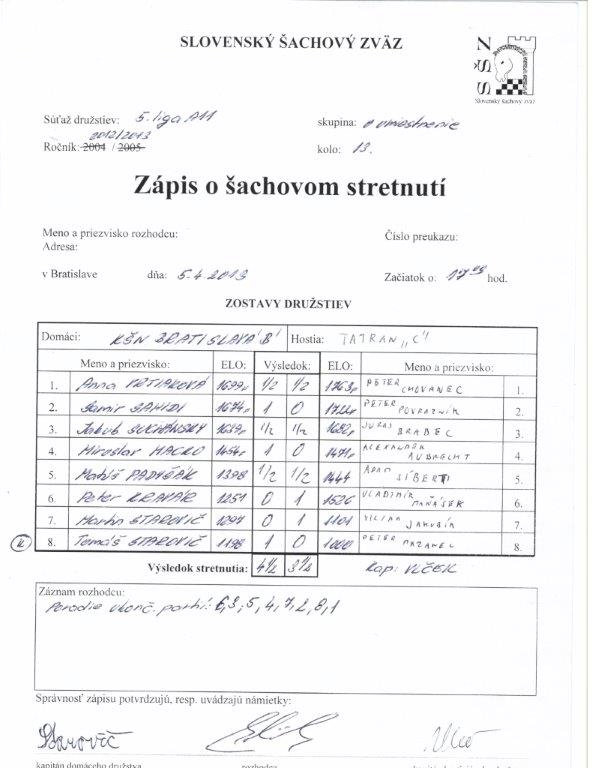 SLOVENSKÝ ŠACHOVÝ ZVÄZ
SŠZ
Slovenský šachový zväz
Súťaž družstiev: 5. liga A11 skupina: o umiestnenie
2012/2013
Ročník: 2004 / 2005 kolo: 13.
Zápis o šachovom stretnutí
Meno a priezvisko rozhodcu: Číslo preukazu:
Adresa:
v Bratislave dňa: 5.4.2013 Začiatok o: 17 hod.
ZOSTAVY DRUŽSTIEV
Domáci: KŠN BRATISLAVA 'B' Hostia: TATRAN „C"
Meno a priezvisko: ELO: Výsledok: ELO: Meno a priezvisko:
1. Anna 1/2 1/2 PETER CHOVANEC 1.
2. Samir SAHIDI 1674 1 0 PETER POVRAZNÍK 2.
3. Jakub SUCHÁNSKY 1/2 1/2 JURAJ BRADEC 3.
4. Miroslav MACKO 1454 1 0 1471 ALEXANDER AUBRECHT 4.
5. Matúš 1398 1/2 1/2 1444 ADAM SÍBERT 5.
6. Peter KRAVÁR 1251 0 1 1526 VLADIMÍR MAŇÁSEK 6.
7. Martin STAROVIČ 1097 0 1 1101 VILIAM JAKUBÍK 7.
8. Tomáš STAROVIČ 1198 1 0 1000 PETER MAZANEC 8.
Výsledok stretnutia: 4 1/2 3 1/2 Kap: VLČEK
Záznam rozhodcu:
Poradie ukonč. partií: 6,3,5,4,7,2,8,1
Správnosť zápisu potvrdzujú, resp. uvádzajú námietky:
Starovič
kapitán domáceho družstva rozhodca